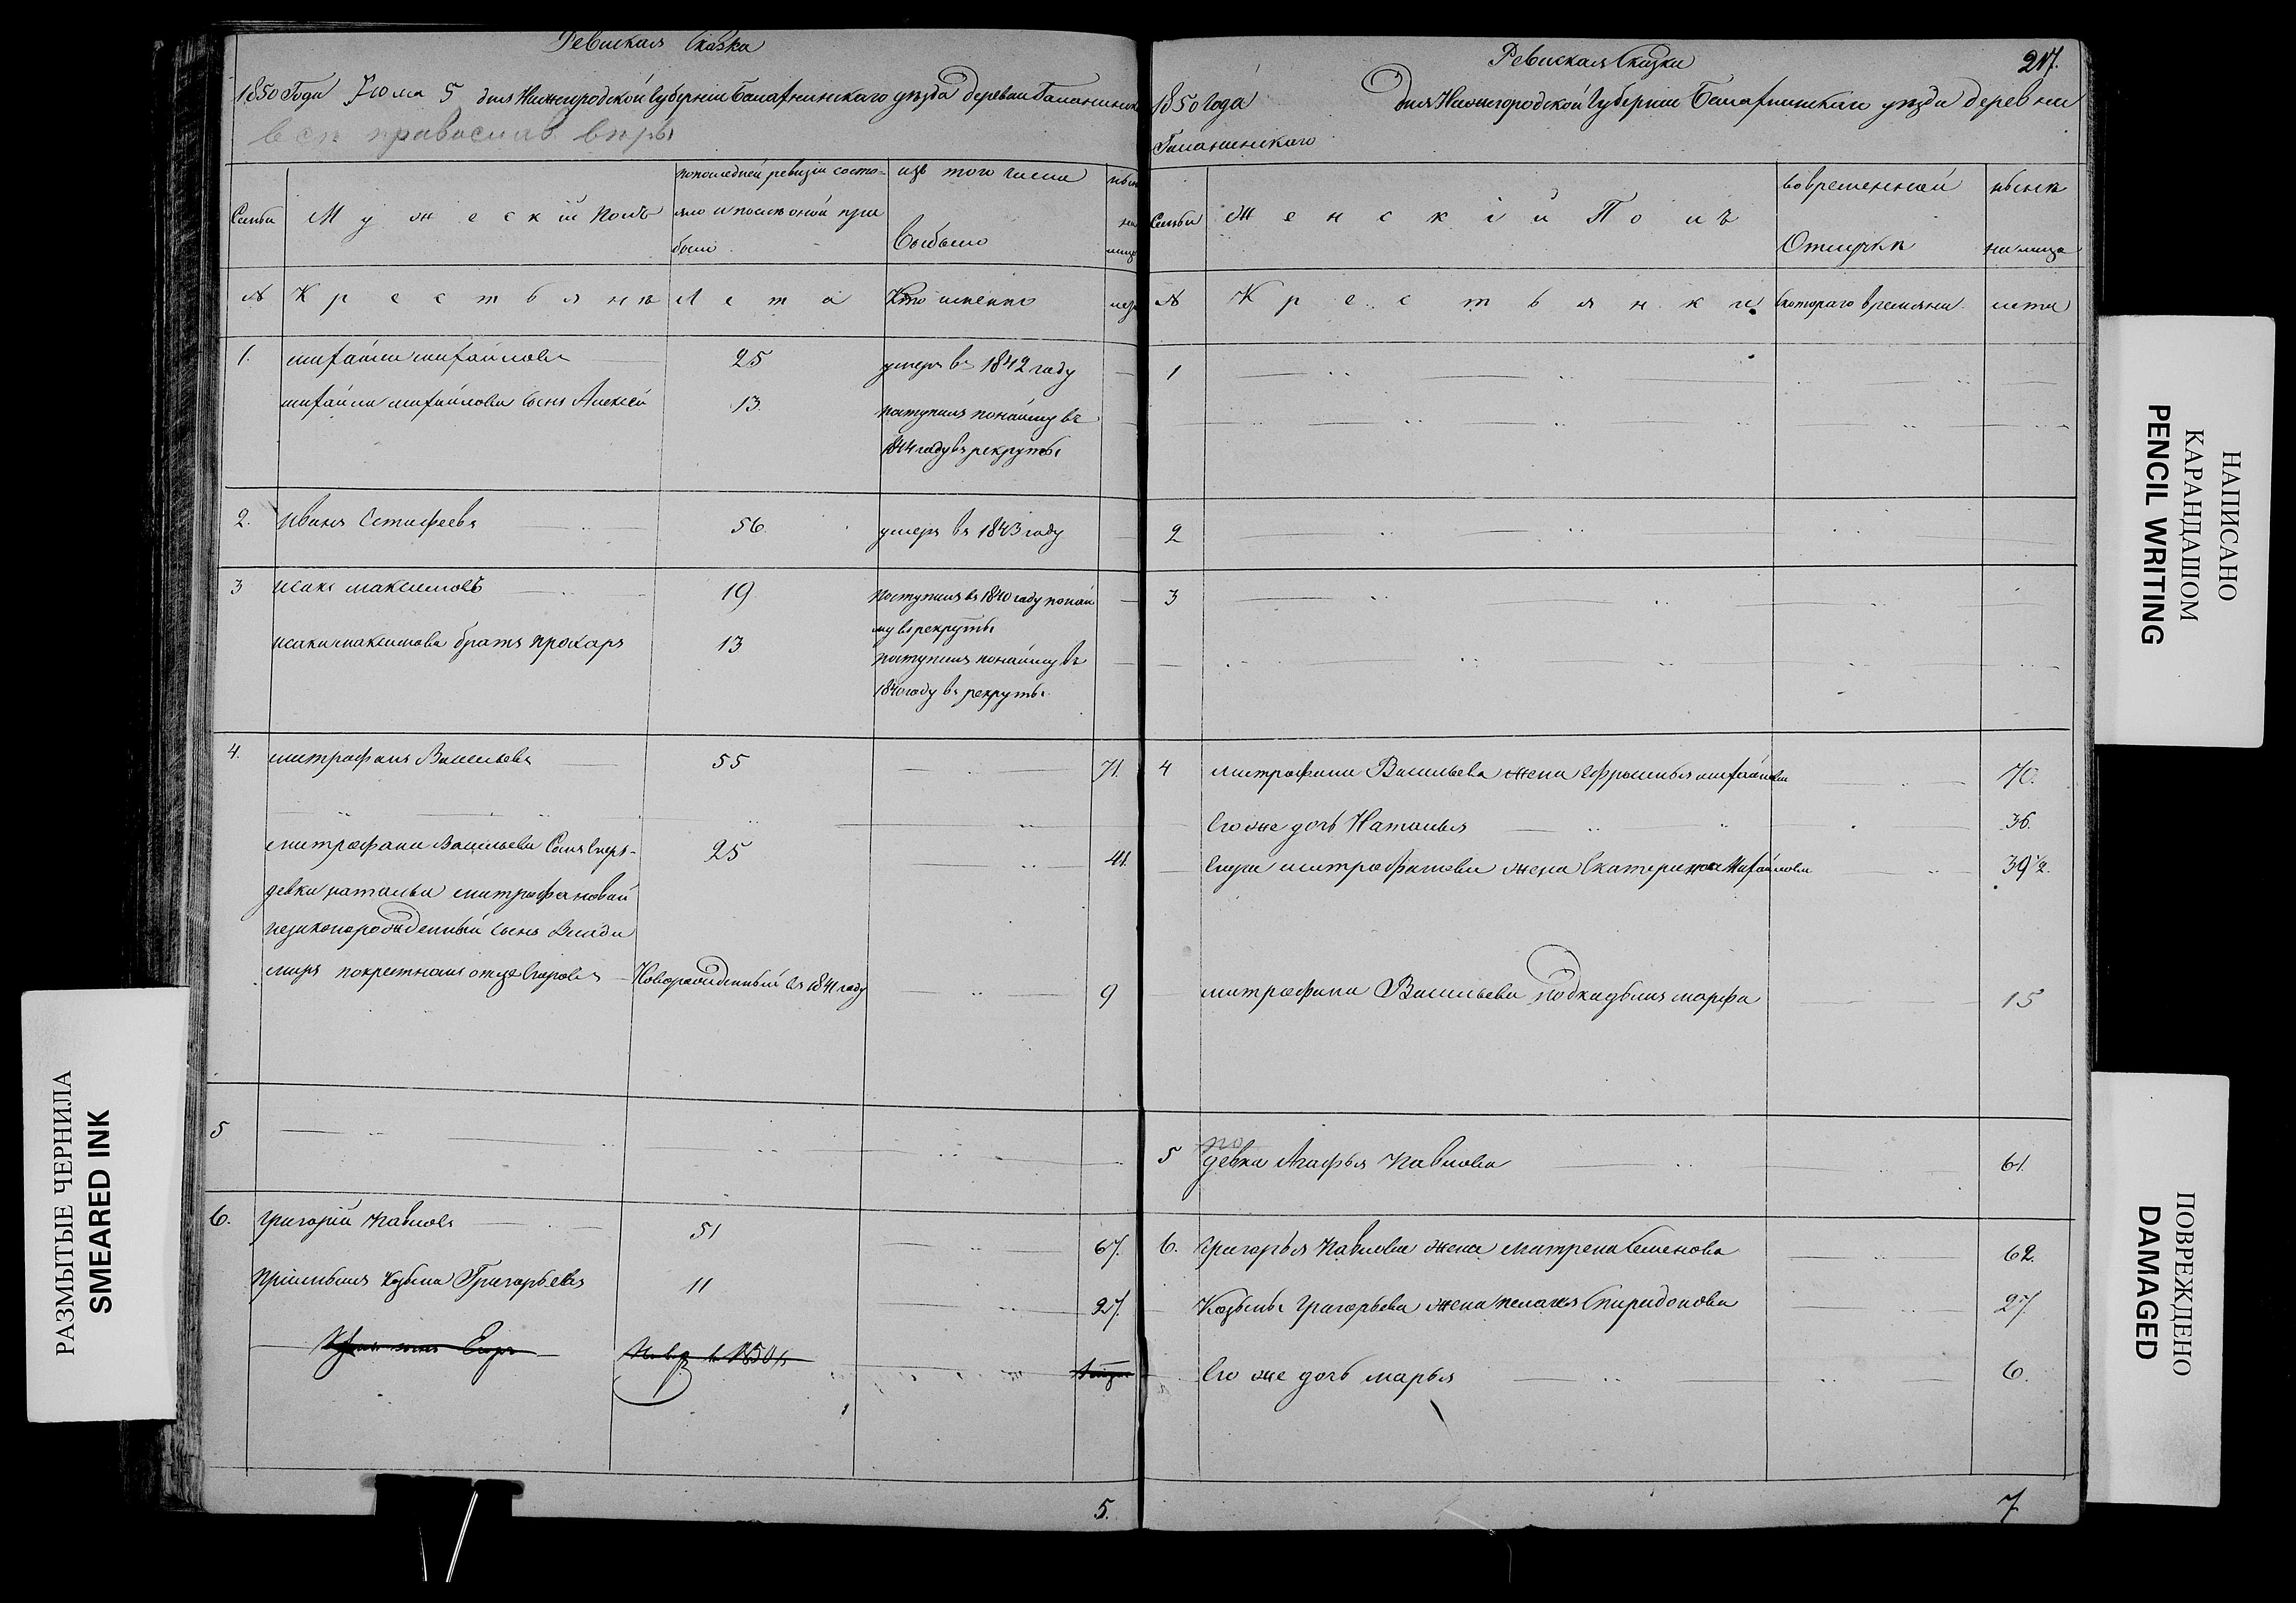 Ревиская Сказка
1850 Года Июля 5 дня Нижегородской Губернии Балахнинского уезда деревни
все православ. веры
Семьи
Мужеский полъ
по последней ревизiи состо-
яло и после оной при
было
изъ того числа
выбыло
№
Крестьяне
Лета
Кто именно
1.
михаила михайловъ
25
умеръ въ 1842 году
михаила михайлова сынъ Алексей
13.
поступилъ по найму въ
1844 году въ рекруты
2.
иванъ Естифеевъ
56
умеръ въ 1843 году
3
исакъ максимовъ
19
поступилъ въ 1840 году по най
му въ рекруты
исака максимова братъ прохаръ
13
поступилъ по найму въ
1840 году въ рекруты
4.
митрофанъ Васильевъ
55
71.
митрофана Васильева Сынъ Егоръ
25
41.
девки натальи митрофановой
незаконорожденный сынъ Влади
миръ по крестном отце Егоровъ
Новорожденный въ 1841 году
9
5
6.
григорий павловъ
51
67.
приимышъ козьма Григорьевъ
11
27.
сынъ Егоръ
5.
Ревиская Сказка
217.
1850 года
дня Нижегородской Губернии Балахнинскаго уезда деревни
Семьи
Женскiй Полъ
во временной
Отлучке
ныне
на лицо
№
Крестьянки
с котораго времяни
лета
1
2
3
4
митрофана Васильева жена ефросинья михайлова
70.
Его же дочь Наталья
36.
Егора митрофанова жена Екатерина Михайлова
39 1/2.
митрофана Васильева подкидышъ марфа
15
5
девка Агафья павлова
61.
6.
григорья павлова жена матрена семенова
62.
Козьмы григорьева жена пелагея Спиридонова
27.
Его же дочь марья
6.
7
НАПИСАНО
КАРАНДАШОМ
PENCIL WRITING
РАЗМЫТЫЕ ЧЕРНИЛА
SMEARED INK
ПОВРЕЖДЕНО
DAMAGED